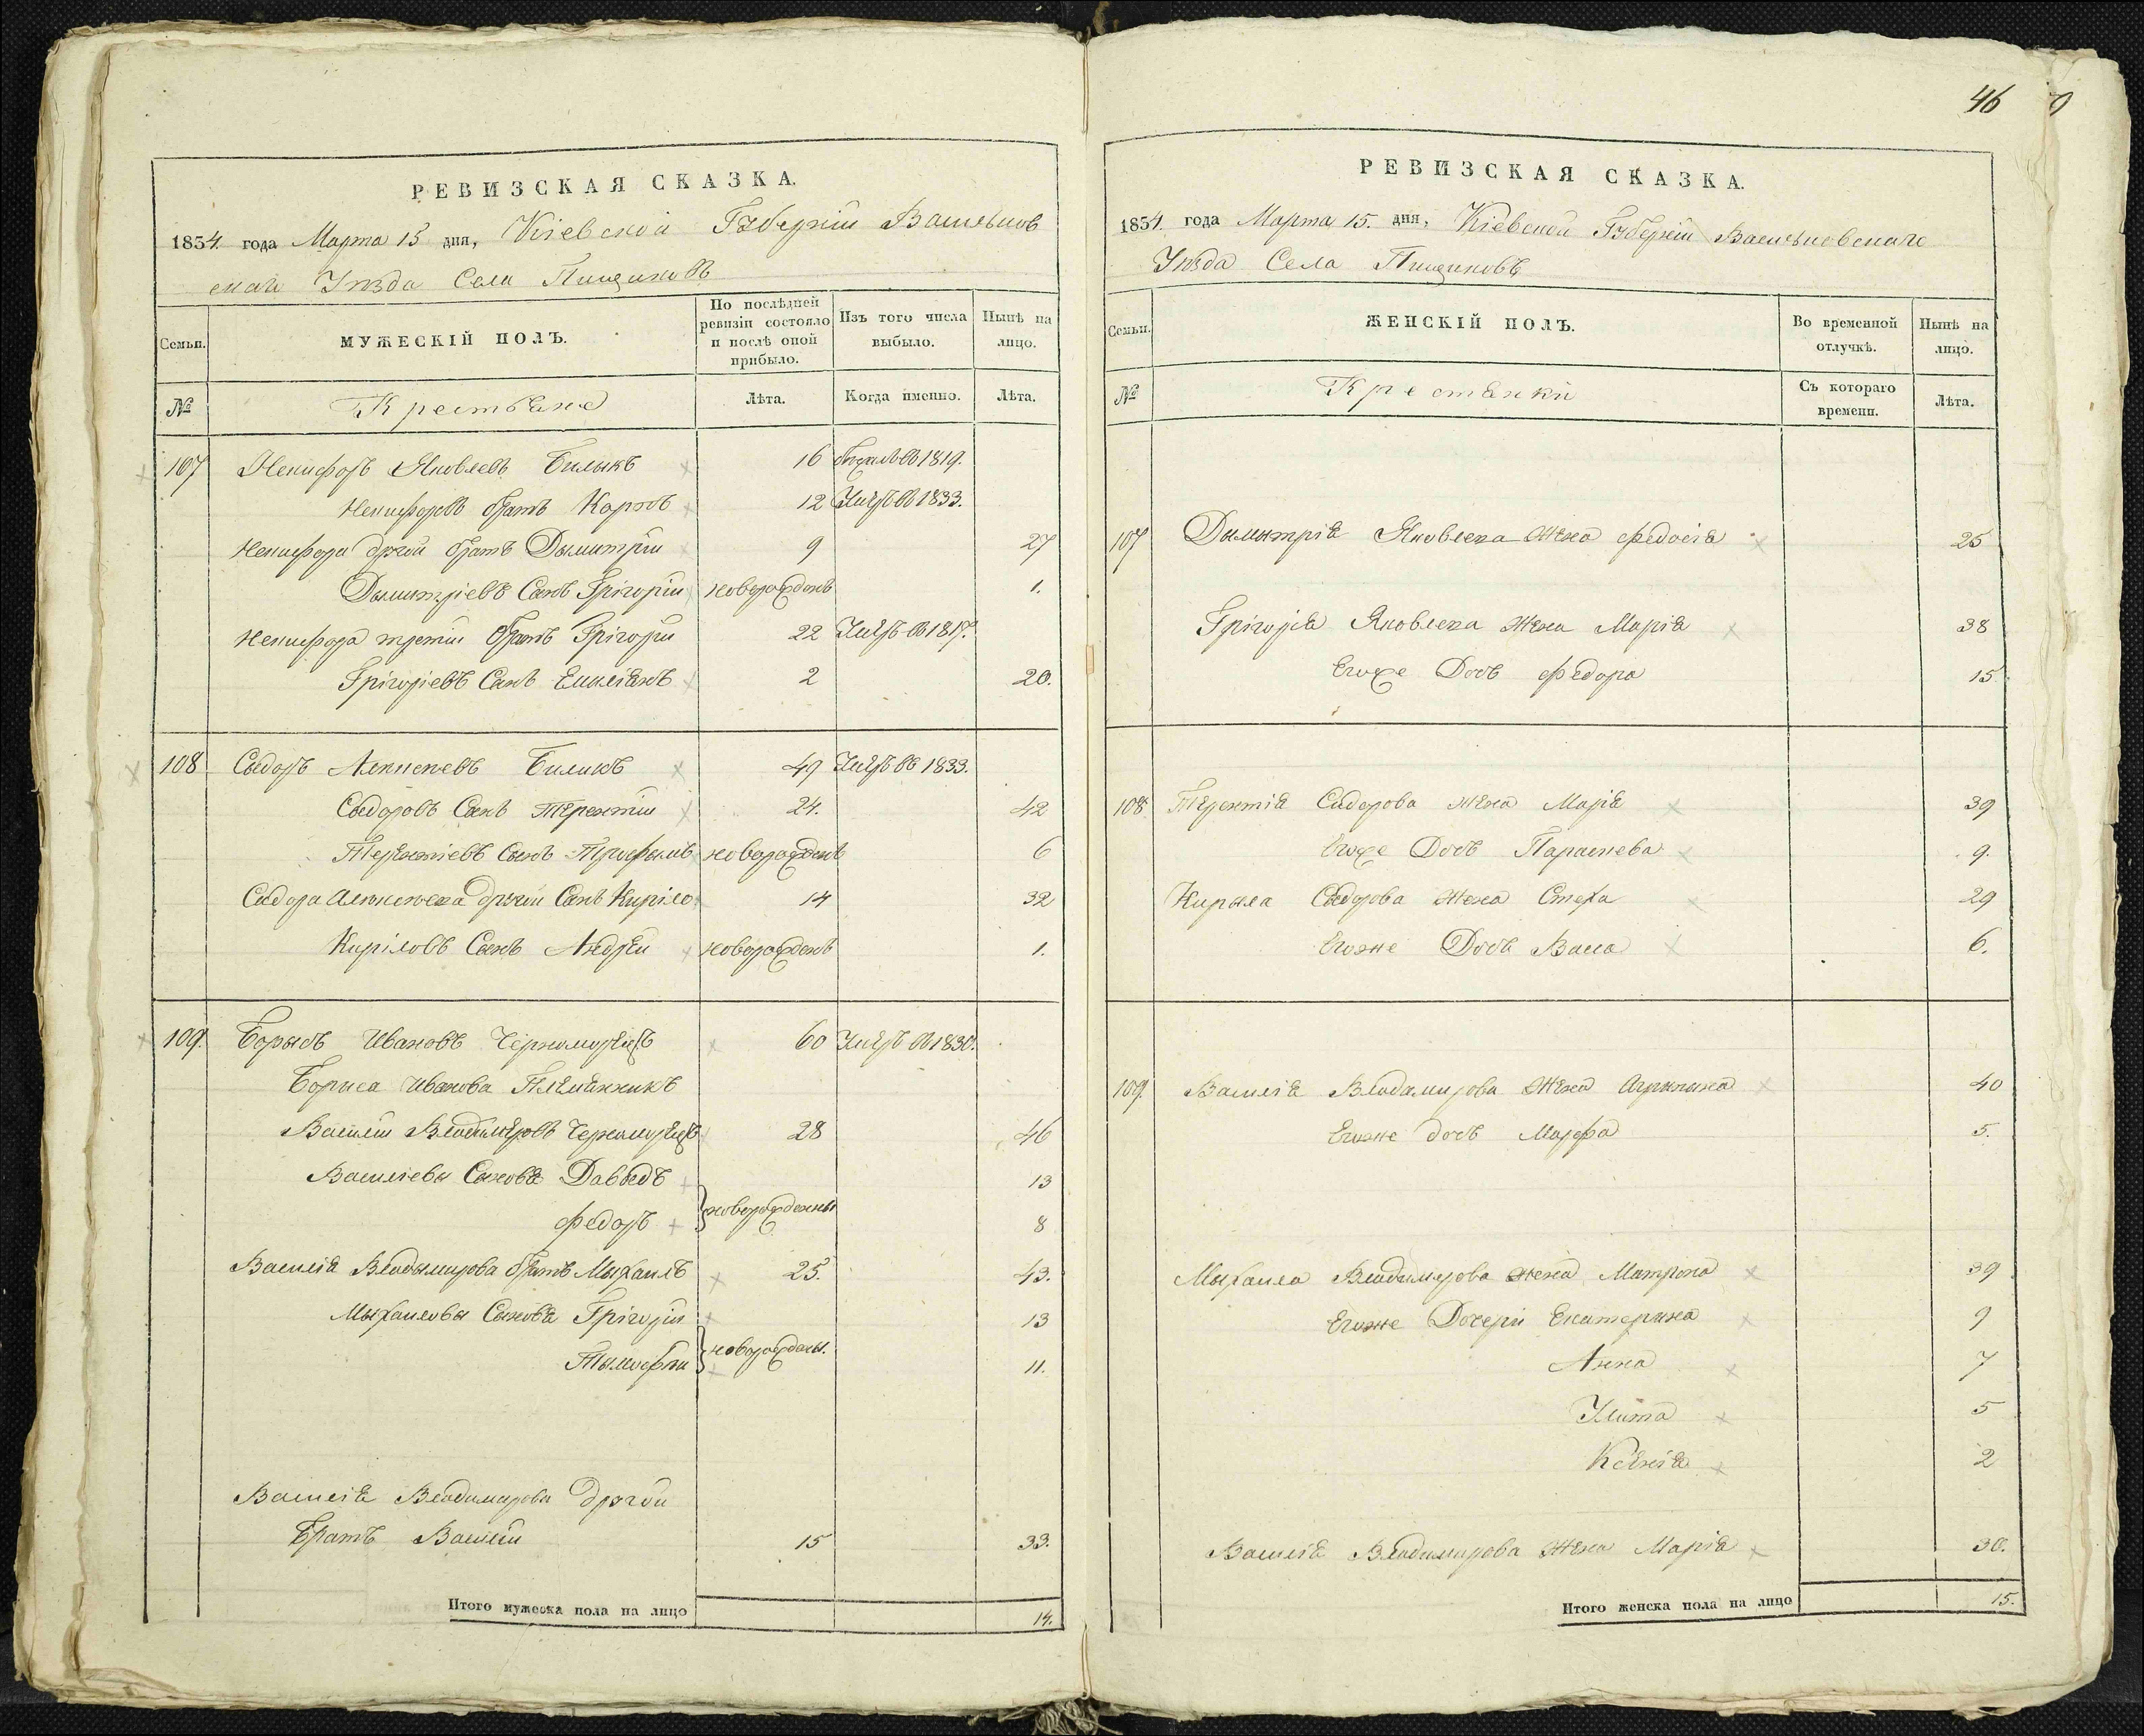 46
РЕВИЗСКАЯ СКАЗКА.
1854 года Марта 15 дня, Кіевской Губерніи Васильков
скаго Уѣзда Села Пищиковъ
Семьи. МУЖЕСКІЙ ПОЛЪ. По послѣдней ревизіи состояло и послѣ оной прибыло. Изъ того числа выбыло. Нынѣ на лицо.
№ Крестьяне Лѣта. Когда именно. Лѣта.
107 Некифоръ Яковлевъ Билыкъ 16 1819.
Некифоровъ братъ Карпъ 12 Умеръ въ 1833.
Некифора другой братъ Дымитрій 9 27
Дымитріевъ Сынъ Григорій новорожденъ 1.
Некифора третій братъ Григорій 22 Умеръ въ 1817.
Григоріевъ Сынъ Емиліянъ 2 20.
108 Сыдоръ Алексѣевъ Билыкъ 49 Умеръ въ 1833.
Сыдоровъ Сынъ Терентій 24. 42
Терентіевъ Сынъ Трофымъ новорожденъ 6
Сидора Алексѣева другой Сынъ Кирило 14 32
Кириловъ Сынъ Андрей новорожденъ 1.
109. Борысъ Ивановъ Черноморецъ 60 Умеръ въ 1830.
Бориса Иванова Племянникъ
Василій Владимеровъ Черноморецъ 28 46
Василіевы Сыновя Давыдъ 13
Федоръ новорождены 8
Василія Владымирова братъ Мыхаилъ 25. 43.
Мыхаиловы Сыновя Григорій 13
Тымофій новорождены. 11.
Василія Владимирова другой
Братъ Василій 15 33.
Итого мужеска пола на лицо 14.
РЕВИЗСКАЯ СКАЗКА.
1854 года Марта 15. дня, Кіевской Губерніи Васильковскаго
Уѣзда Села Пищиковъ
Семьи. ЖЕНСКІЙ ПОЛЪ. Во временной отлучкѣ. Нынѣ на лицо.
№ Крестянки Съ котораго времени. Лѣта.
107 Дымитрія Яковлева Жена Федосія 25
Григорія Яковлева Жена Марія 38
Егоже Дочь Федора 15
108. Терентія Сидорова жена Марія 39
Егоже Дочь Параскева 9.
Кирыла Сыдорова Жена Стеха 29
Егоже Дочь Васса 6.
109. Василія Владимирова Жена Агрипина 40
Егоже дочь Марфа 5.
Мыхаила Владимирова жена Матрона 39
Егоже Дочери Екатерина 9
Анна 7
Улита 5
Ксенія 2
Василія Владимирова Жена Марія 30.
Итого женска пола на лицо 15.